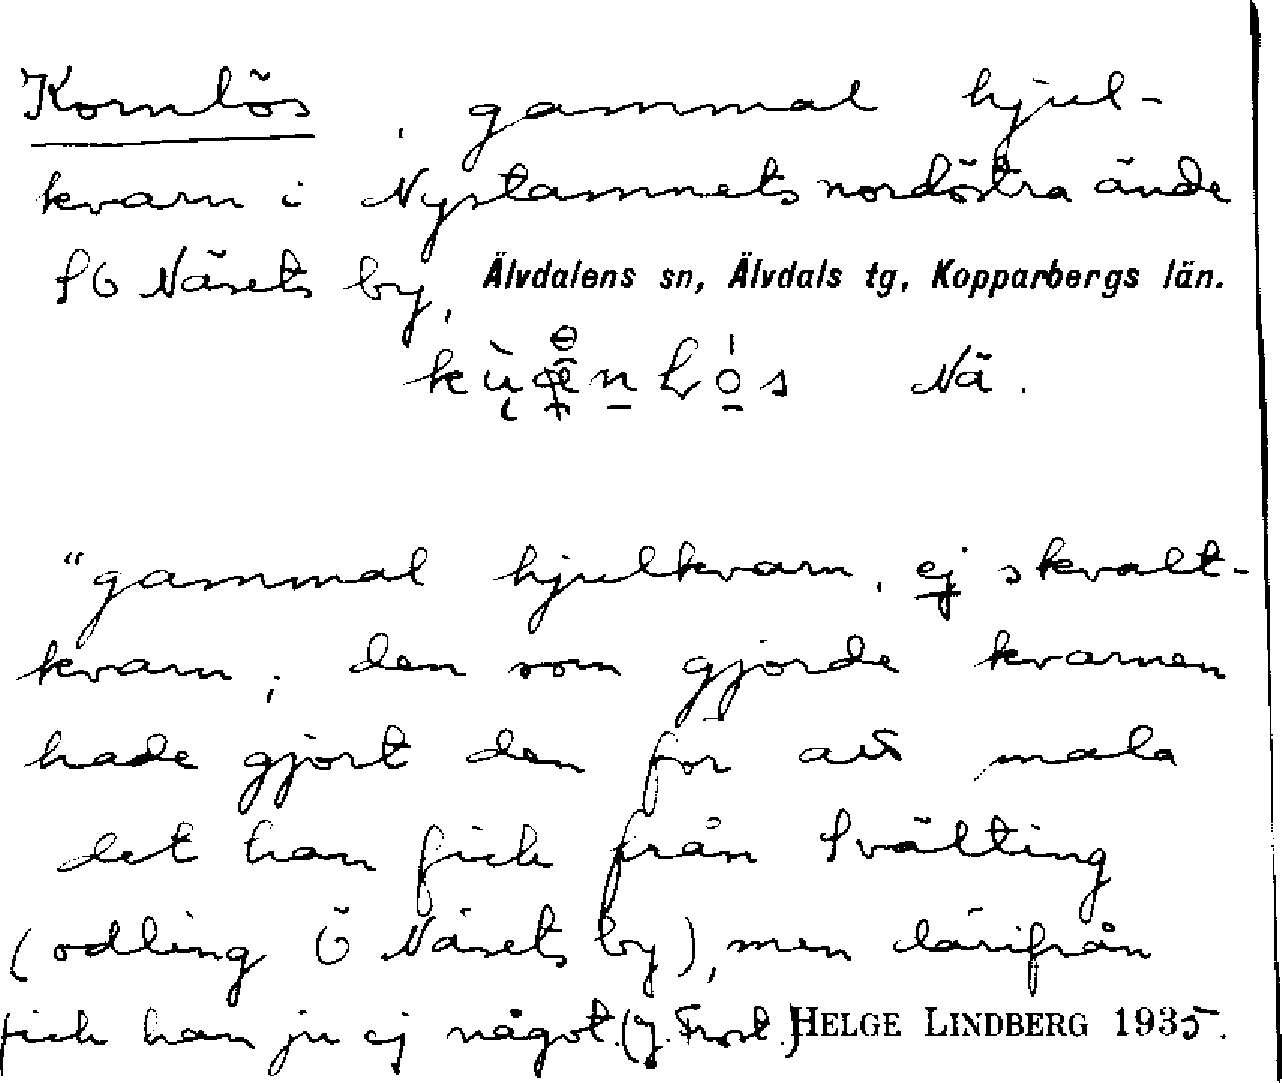 Kornlös, gammal hjul-
kvarn i Nystamnets nordöstra ände
SÖ Näsets by, Älvdalens sn, Älvdals tg, Kopparbergs län.
Nä.
"gammal hjulkvarn, ej skvalt-
kvarn; den som gjorde kvarnen
hade gjort den för att mala
det han fick från Svälting
(odling Ö Näsets by), men därifrån
fick han ju ej något. (J. Frost.) HELGE LINDBERG 1935.